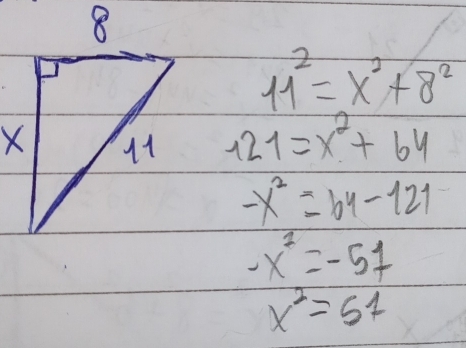 8
x
11
11² = x² + 8²
121 = x² + 64
-x² = 64 - 121
-x² = -57
x² = 57